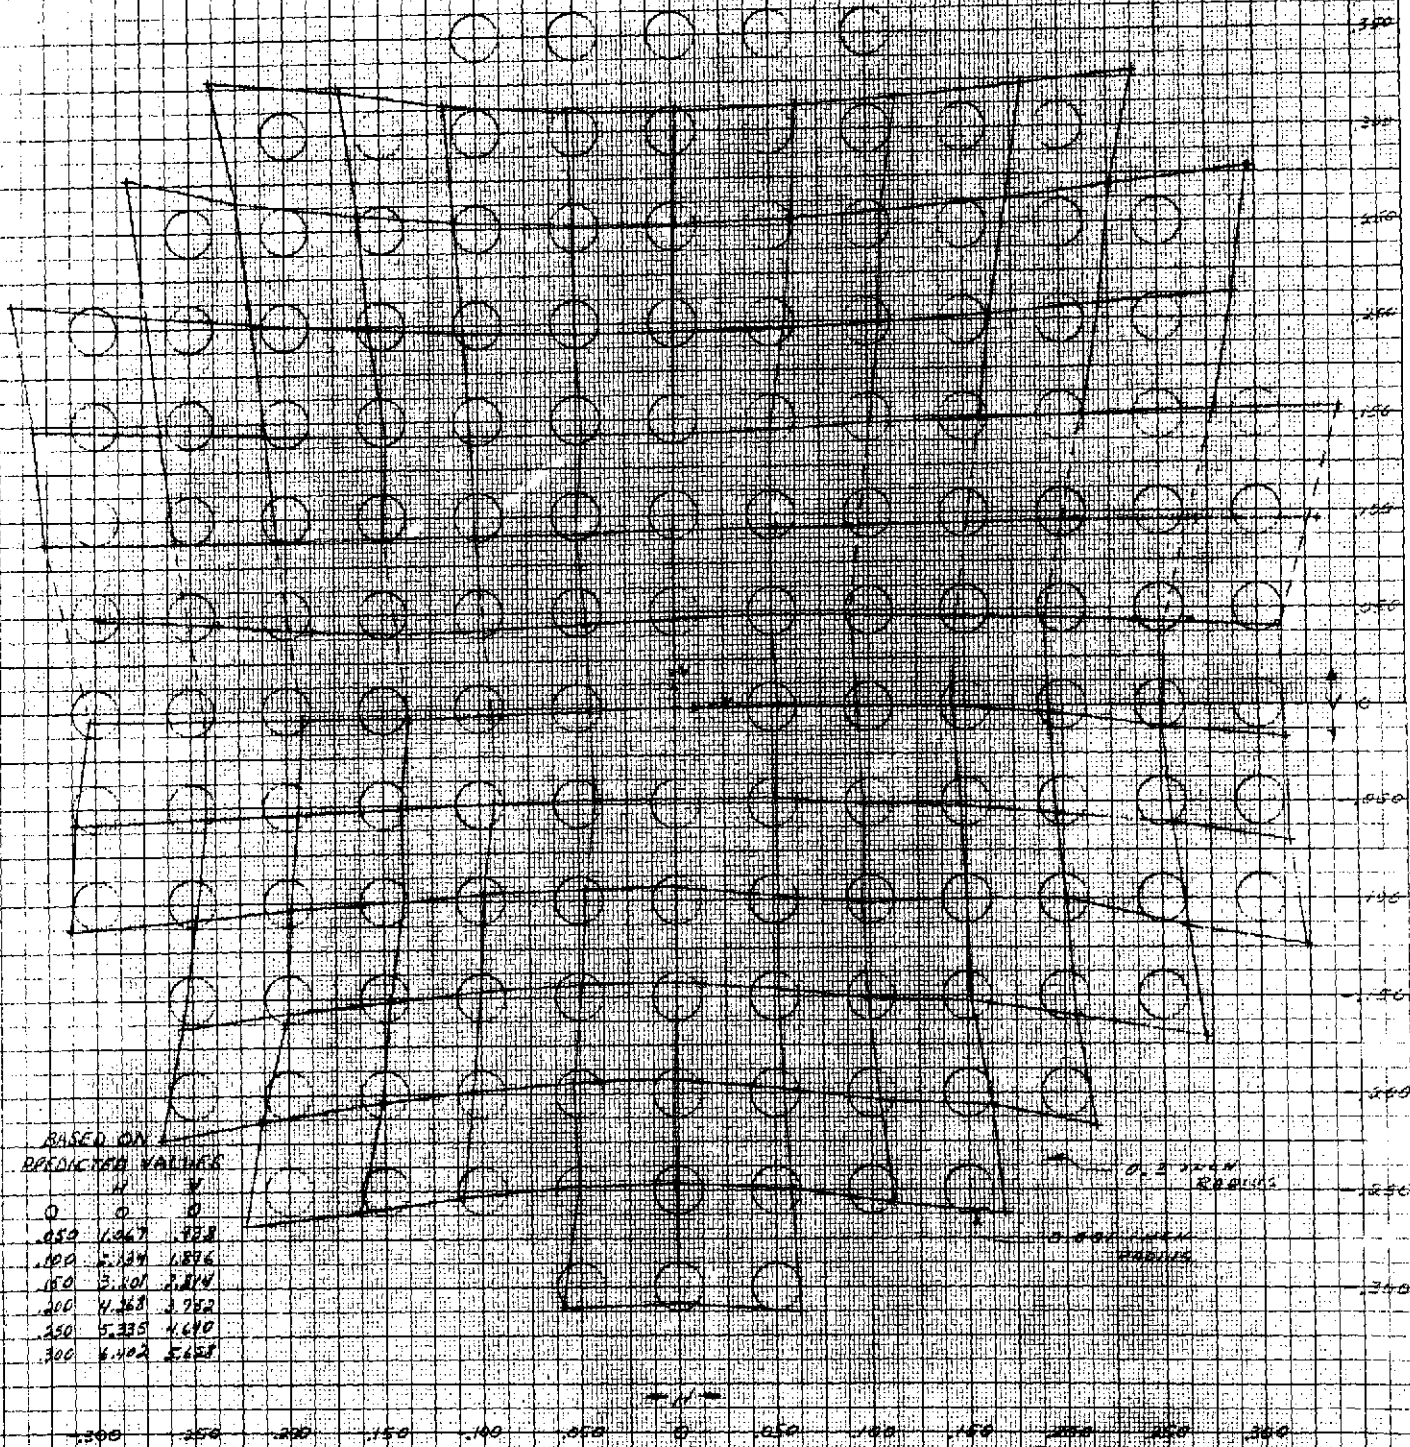 .350
.300
.250
.200
.150
.100
.050
0
-.050
-.100
-.150
-.200
-.250
-.300
V
BASED ON
PREDICTED VALUES
H V
0 0 0
.050 1.067 .938
.100 2.134 1.876
.150 3.201 2.814
.200 4.268 3.752
.250 5.335 4.690
.300 6.402 5.628
INCH
RADIUS
0.001 INCH
RADIUS
H
-.300 .250 .200 .150 .100 .050 0 .050 .100 .150 .200 .250 .300